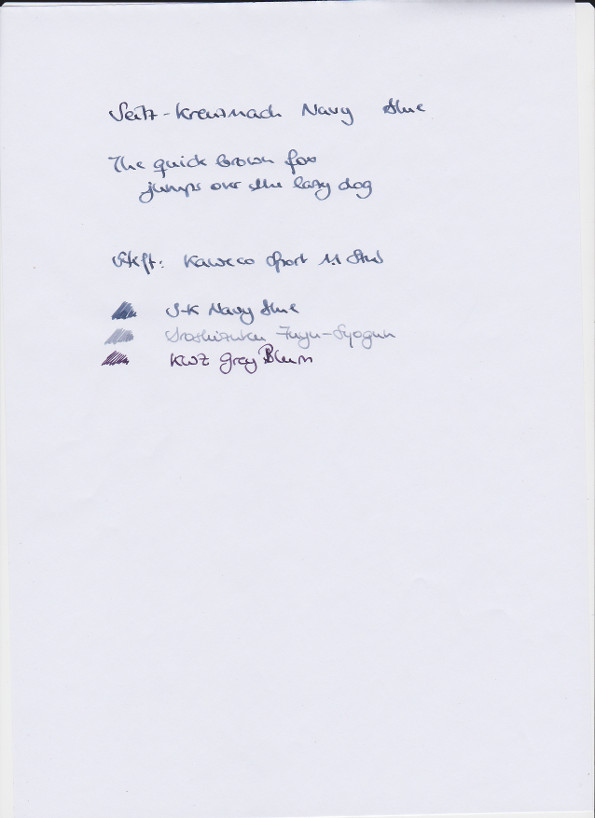 Seitz-Kreuznach Navy Blue
The quick brown fox
jumps over the lazy dog
Stift: Kaweco Sport 1.1 Stub
S-K Navy Blue
Iroshizuku Fuyu-Syogun
KWZ Grey Plum